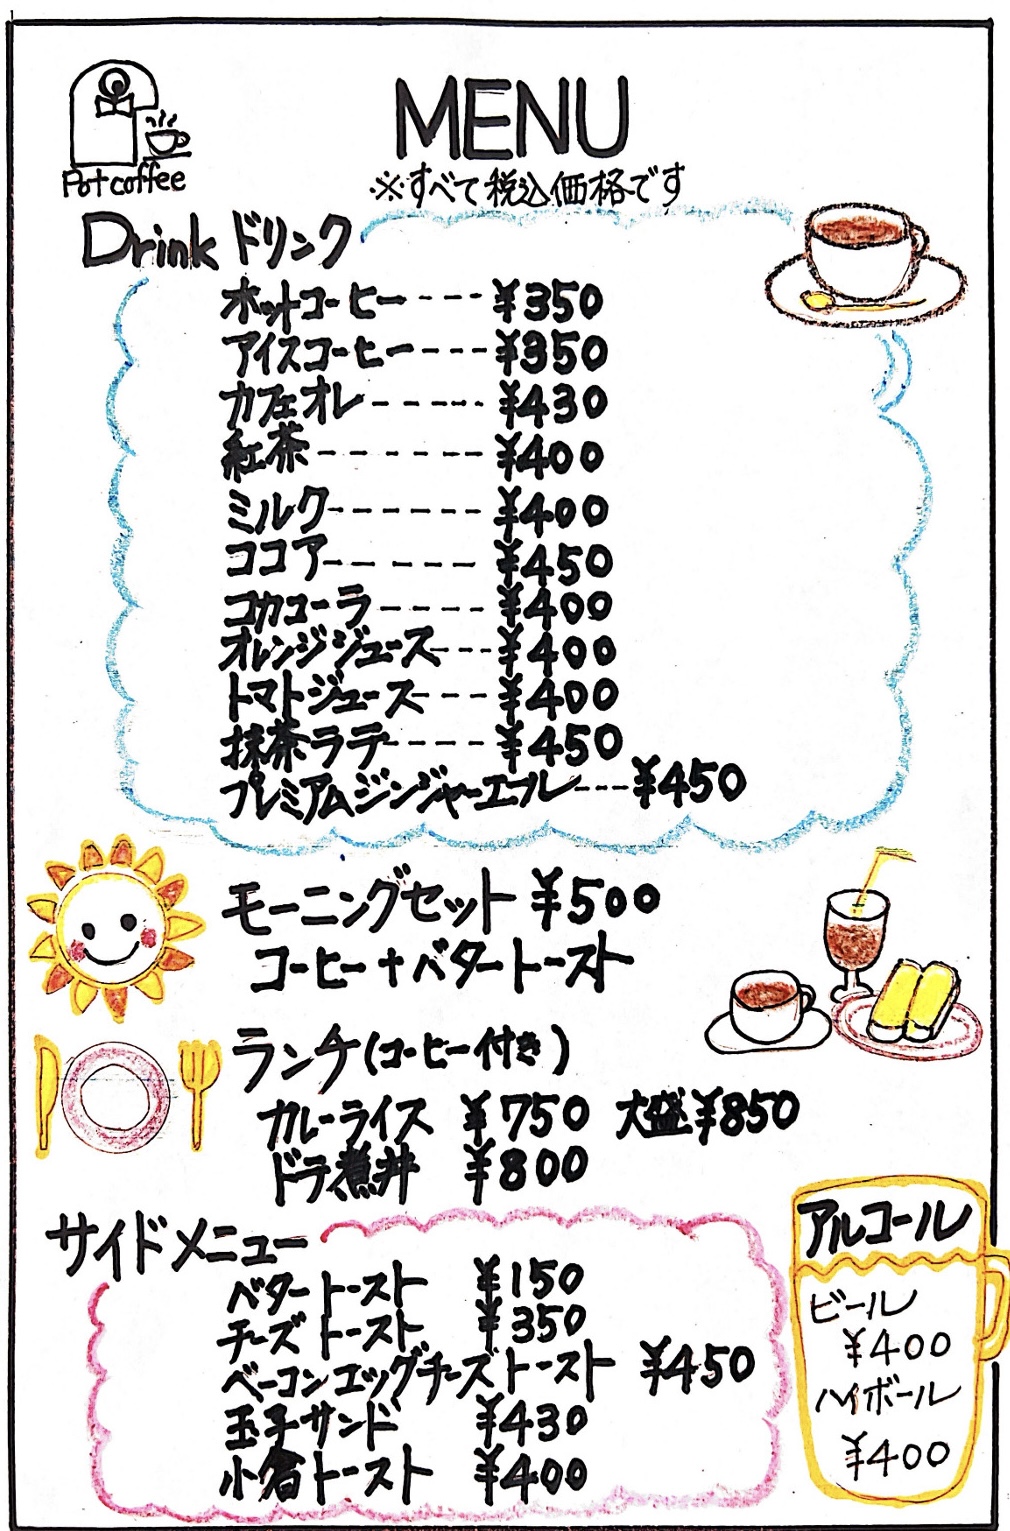 Pot coffee
MENU
※すべて税込価格です
Drink ドリンク
ホットコーヒー---- ¥350
アイスコーヒー---- ¥350
カフェオレ----- ¥430
紅茶------- ¥400
ミルク------ ¥400
ココア------ ¥450
コカコーラ----- ¥400
オレンジジュース--- ¥400
トマトジュース--- ¥400
抹茶ラテ----- ¥450
プレミアムジンジャーエール--- ¥450
モーニングセット ¥500
コーヒー+バタートースト
ランチ(コーヒー付き)
カレーライス ¥750 大盛¥850
ドラ煮丼 ¥800
サイドメニュー
バタートースト ¥150
チーズトースト ¥350
ベーコンエッグチーズトースト ¥450
玉子サンド ¥430
小倉トースト ¥400
アルコール
ビール
¥400
ハイボール
¥400